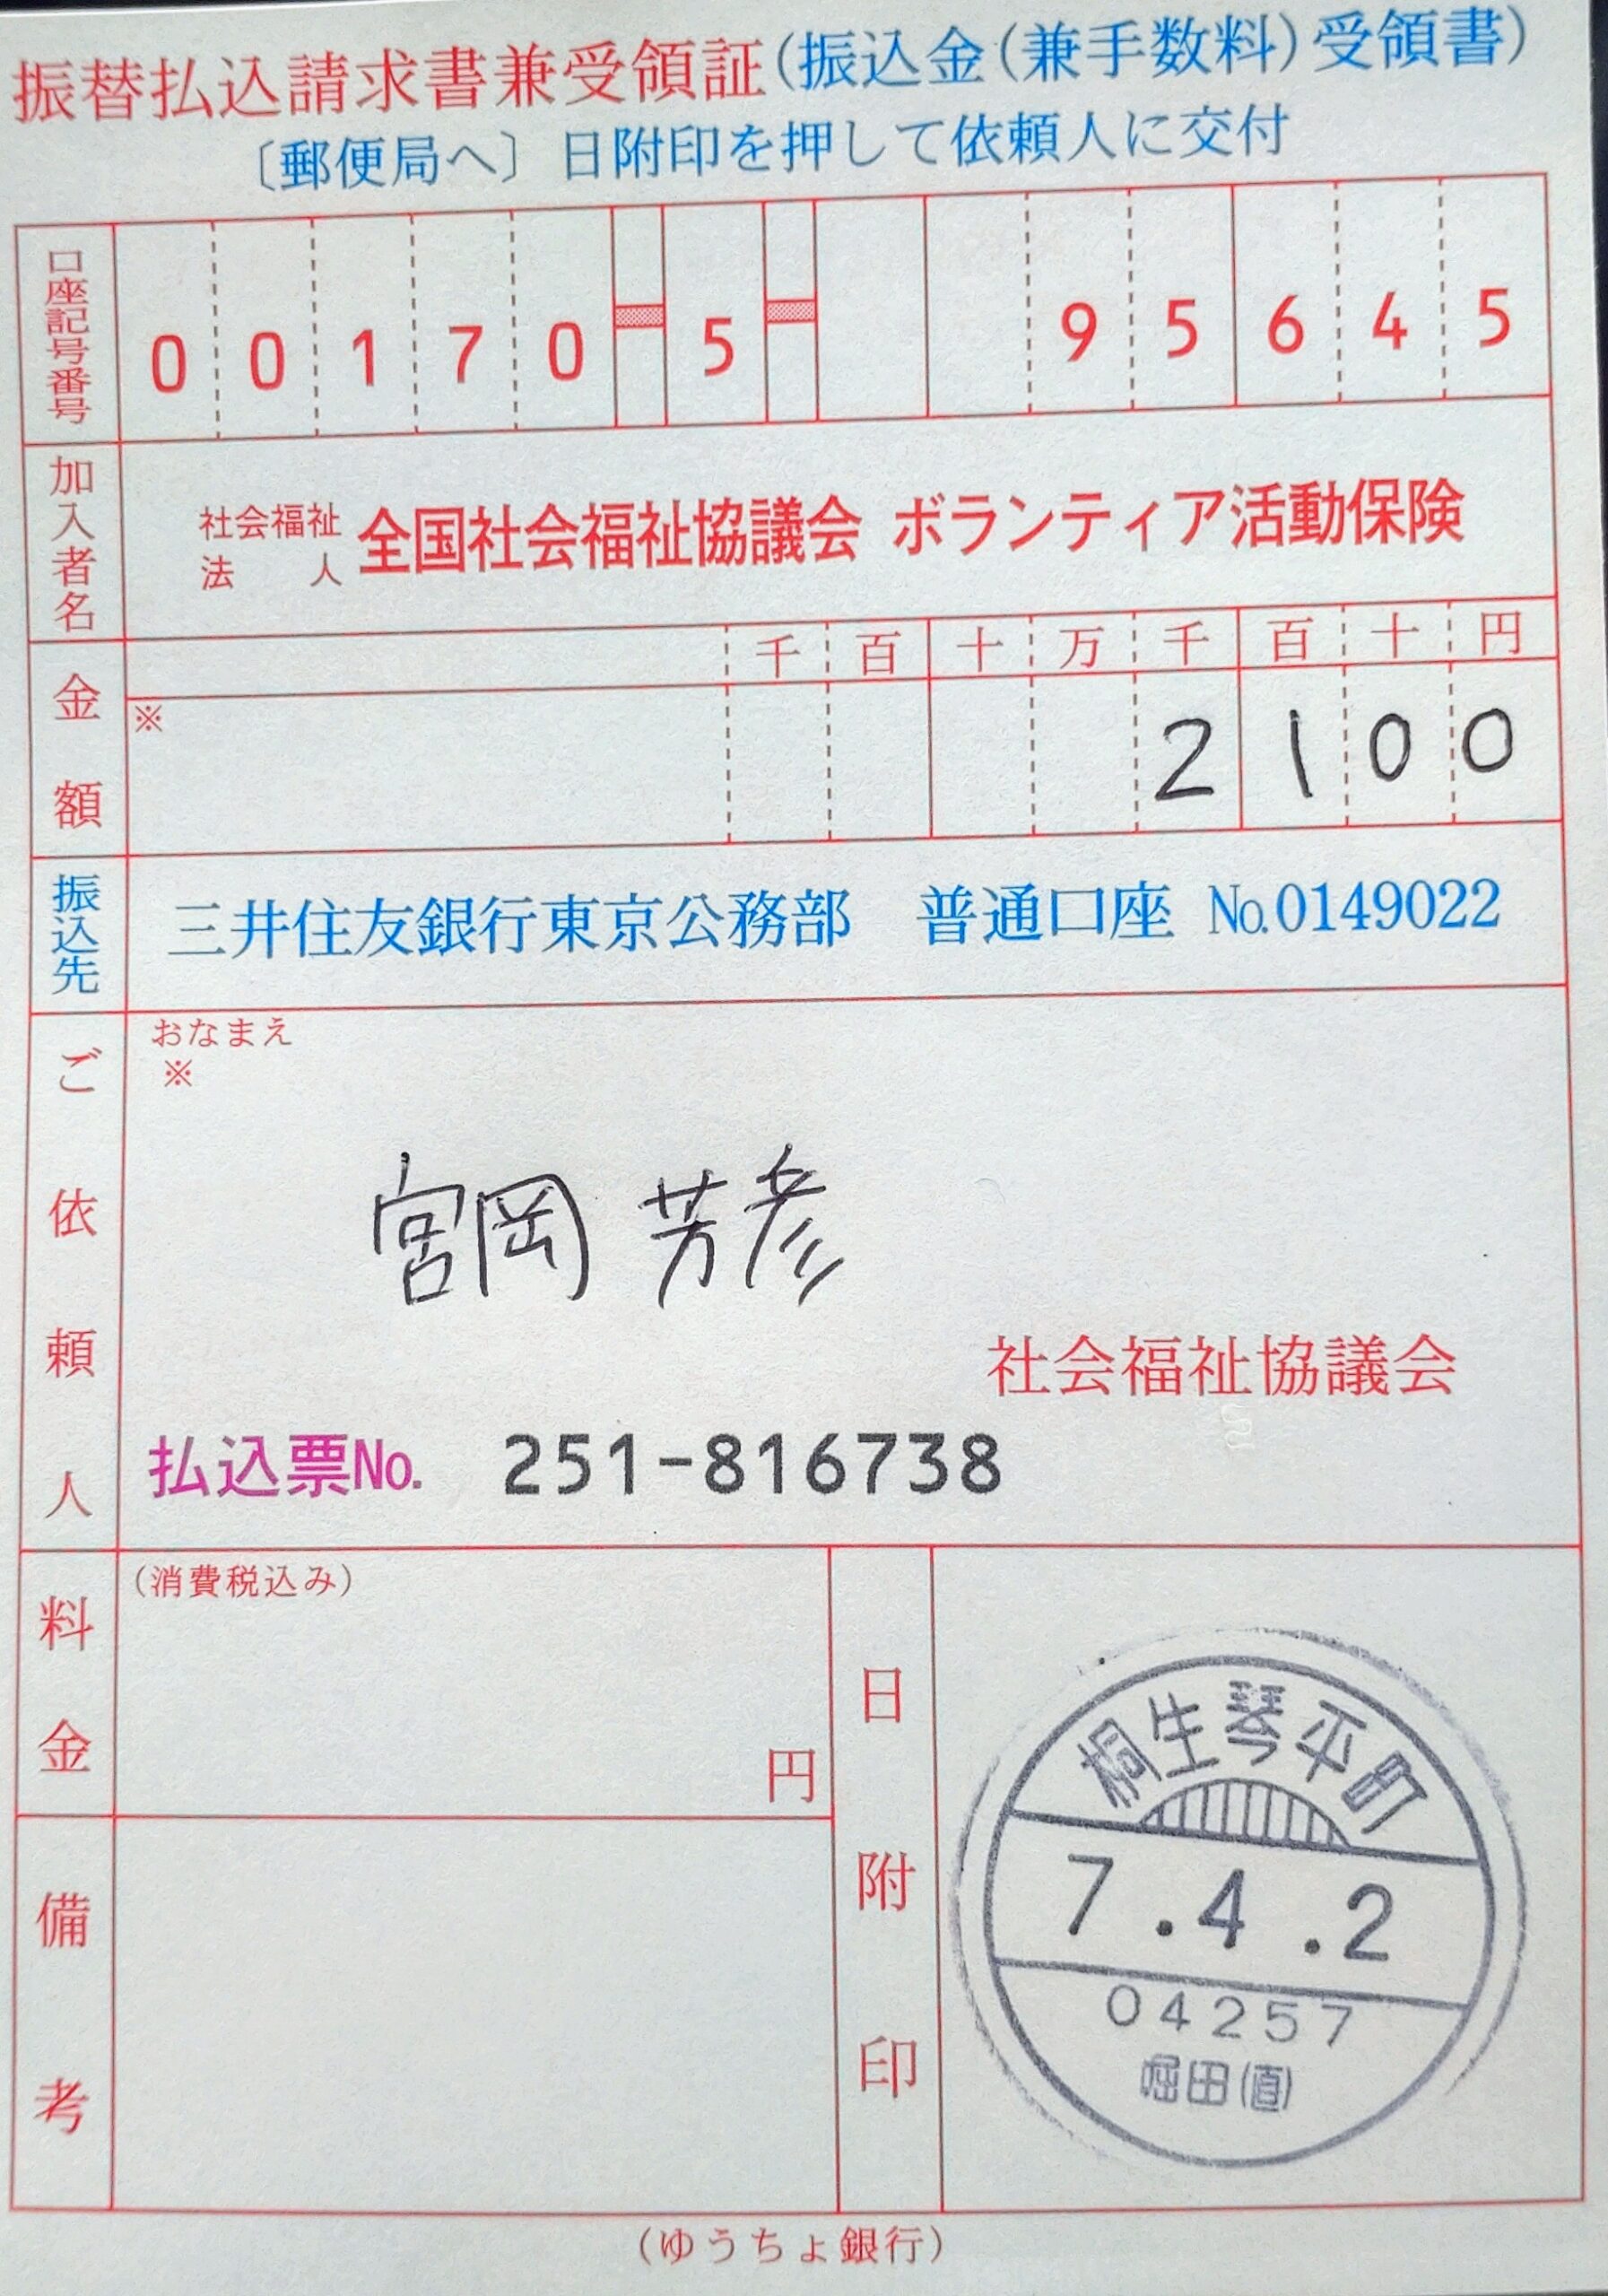 振替払込請求書兼受領証(振込金(兼手数料)受領書)
〔郵便局へ〕日附印を押して依頼人に交付
口座記号番号 00170-5-95645
加入者名 社会福祉法人 全国社会福祉協議会 ボランティア活動保険
千百十万千百十円
金額 ※ 2100
振込先 三井住友銀行東京公務部 普通口座 No.0149022
ご依頼人
おなまえ
※
宮岡 芳彦
社会福祉協議会
払込票No. 251-816738
料金 (消費税込み) 円
備考
日附印
桐生琴平町
7.4.2
04257
堀田(直)
(ゆうちょ銀行)